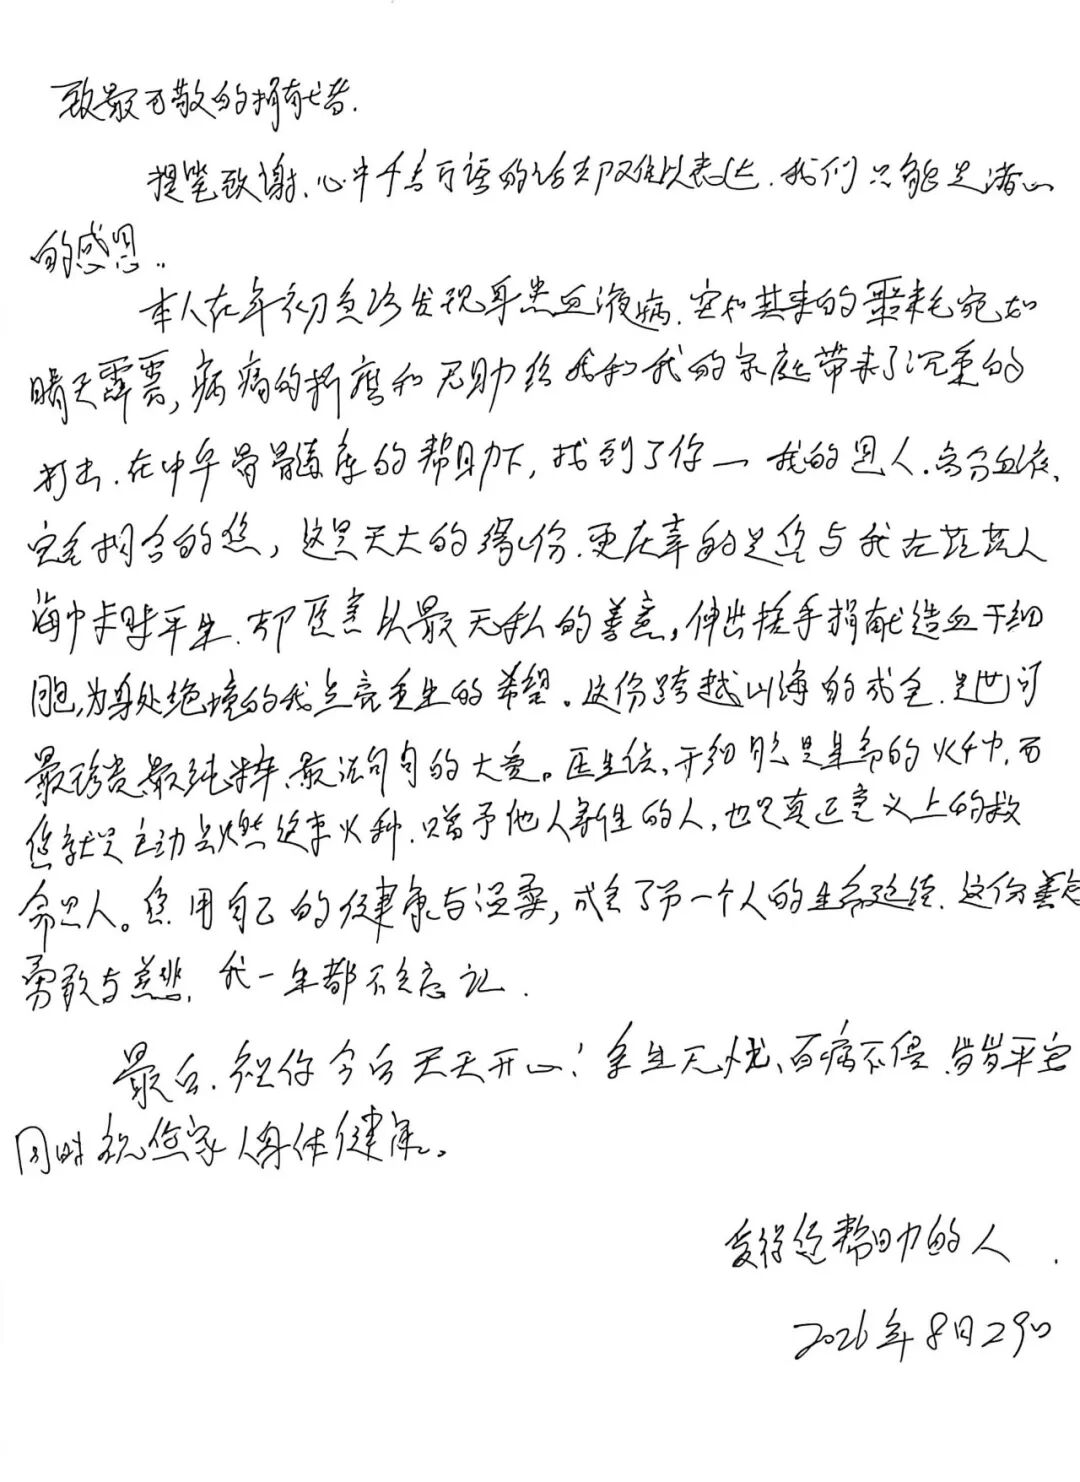 致最可敬的捐献者.
提笔致谢.心中千言万语的话却难以表达.我们只能是满心
的感恩..
本人在年初意外发现身患血液病.突如其来的噩耗宛如
晴天霹雳,病痛的折磨和无助给我和我的家庭带来了沉重的
打击.在中华骨髓库的帮助下,找到了你一我的恩人.高分血液.
完全相合的您,这是天大的缘份.更庆幸的是您与我在茫茫人
海中素昧平生.却愿意以最无私的善意,伸出援手捐献造血干细
胞,为身处绝境的我点亮重生的希望。这份跨越山海的成全.是世间
最珍贵、最纯粹、最的大爱。医生说,干细胞是生命的火种,而
您就是主动点燃这束火种.赠予他人新生的人,也是真正意义上的救
命恩人。您用自己的健康与温柔,成全了另一个人的生命延续.这份善念
勇敢与慈悲.我一生都不会忘记.
最后.祝你今后天天开心!余生无忧、百病不侵.岁岁平安
同时祝您家人身体健康。
受得您帮助的人.
2026年8月29日